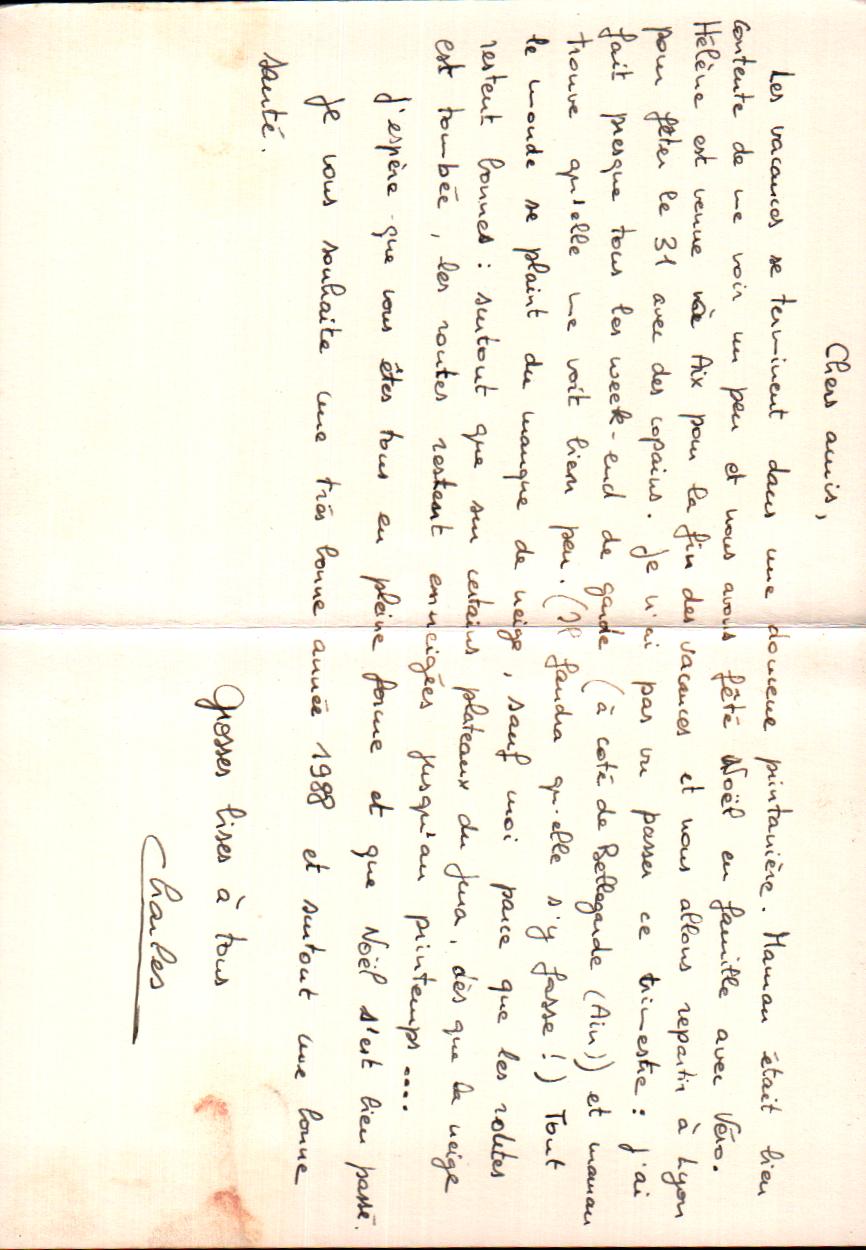 Chers amis,
Les vacances se terminent dans une douceur printanière. Maman était bien
contente de me voir un peu et nous avons fêté Noël en famille avec Véro.
Hélène est venue à Aix pour la fin des vacances et nous allons repartir à Lyon
pour fêter le 31 avec des copains. Je n'ai pas vu passer ce trimestre : j'ai
fait presque tous les week-end de garde (à coté de Bellegarde (Ain)) et maman
trouve qu'elle me voit bien peu. (Il faudra qu'elle s'y fasse !) Tout
le monde se plaint du manque de neige, sauf moi parce que les routes
restent bonnes : surtout que sur certains plateaux du Jura, dès que la neige
est tombée, les routes restent enneigées jusqu'au printemps....
J'espère que vous êtes tous en pleine forme et que Noël s'est bien passé.
Je vous souhaite une très bonne année 1988 et surtout une bonne
santé.
Grosses bises à tous
Charles